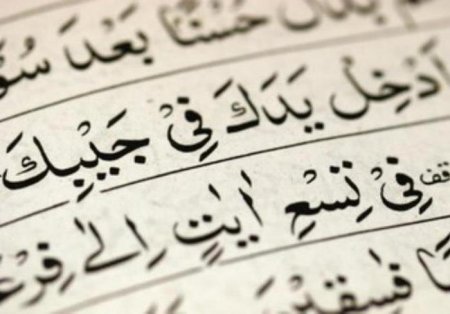 حُسْنًا بَعْدَ سُوْ
اَدْخِلْ يَدَكَ فِيْ جَيْبِكَ
قف فِيْ تِسْعِ اٰيٰتٍ اِلٰى فِرْعَ
فٰسِقِيْنَ